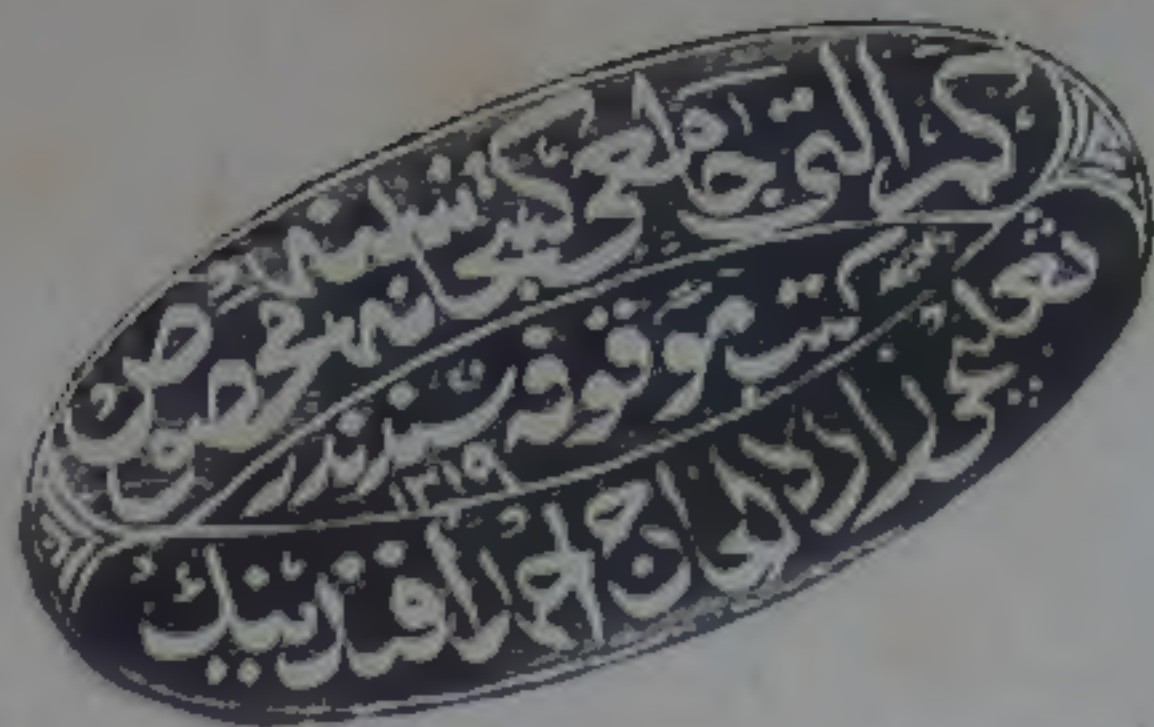 كمر التى جامعى كتبخانه سنه مخصوص
كتب موقوفه سندندر
١٣١٩
نعليجى زاده الحاج احمد افندينك